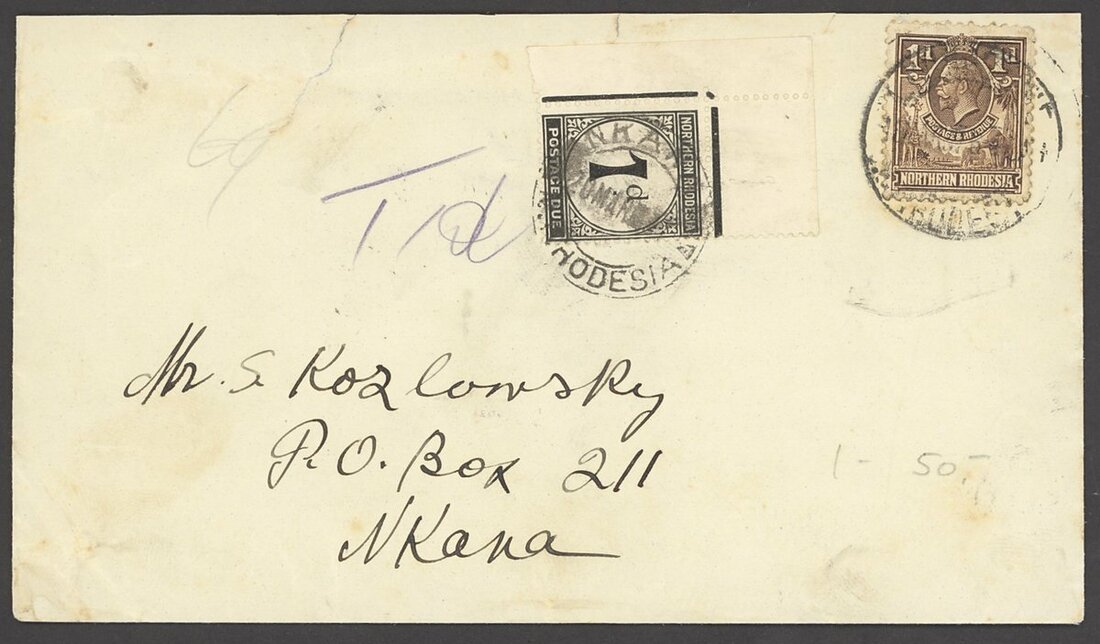 1d 1d
POSTAGE & REVENUE
NORTHERN RHODESIA
NORTHERN RHODESIA
1d
POSTAGE DUE
NKANA
RHODESIA
T 1d
Mr. S Kozlowsky
P.O. Box 211
NKana
1 - 50 -